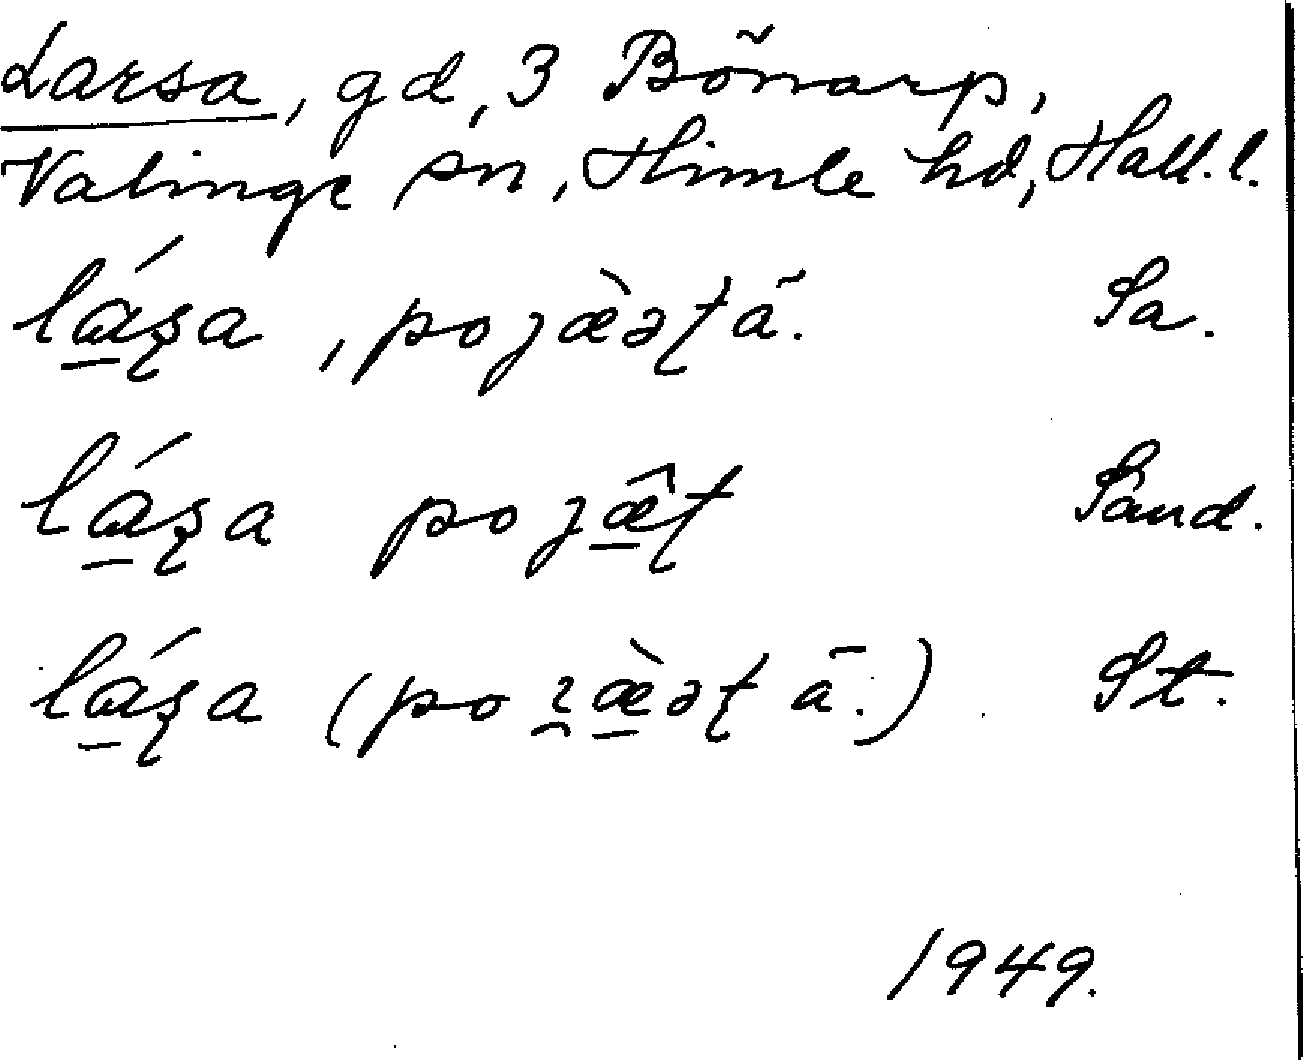 Larsa, gd, 3 Bönarp,
Valinge sn, Himle hd, Hall. l.
lá̱ʂa, poȷæ̀əʈā. Sa.
lá̱ʂa poȷæ̱̂ʈ Sand.
lá̱ʂa (poɿæ̱̀əʈ ā.) St.
1949.